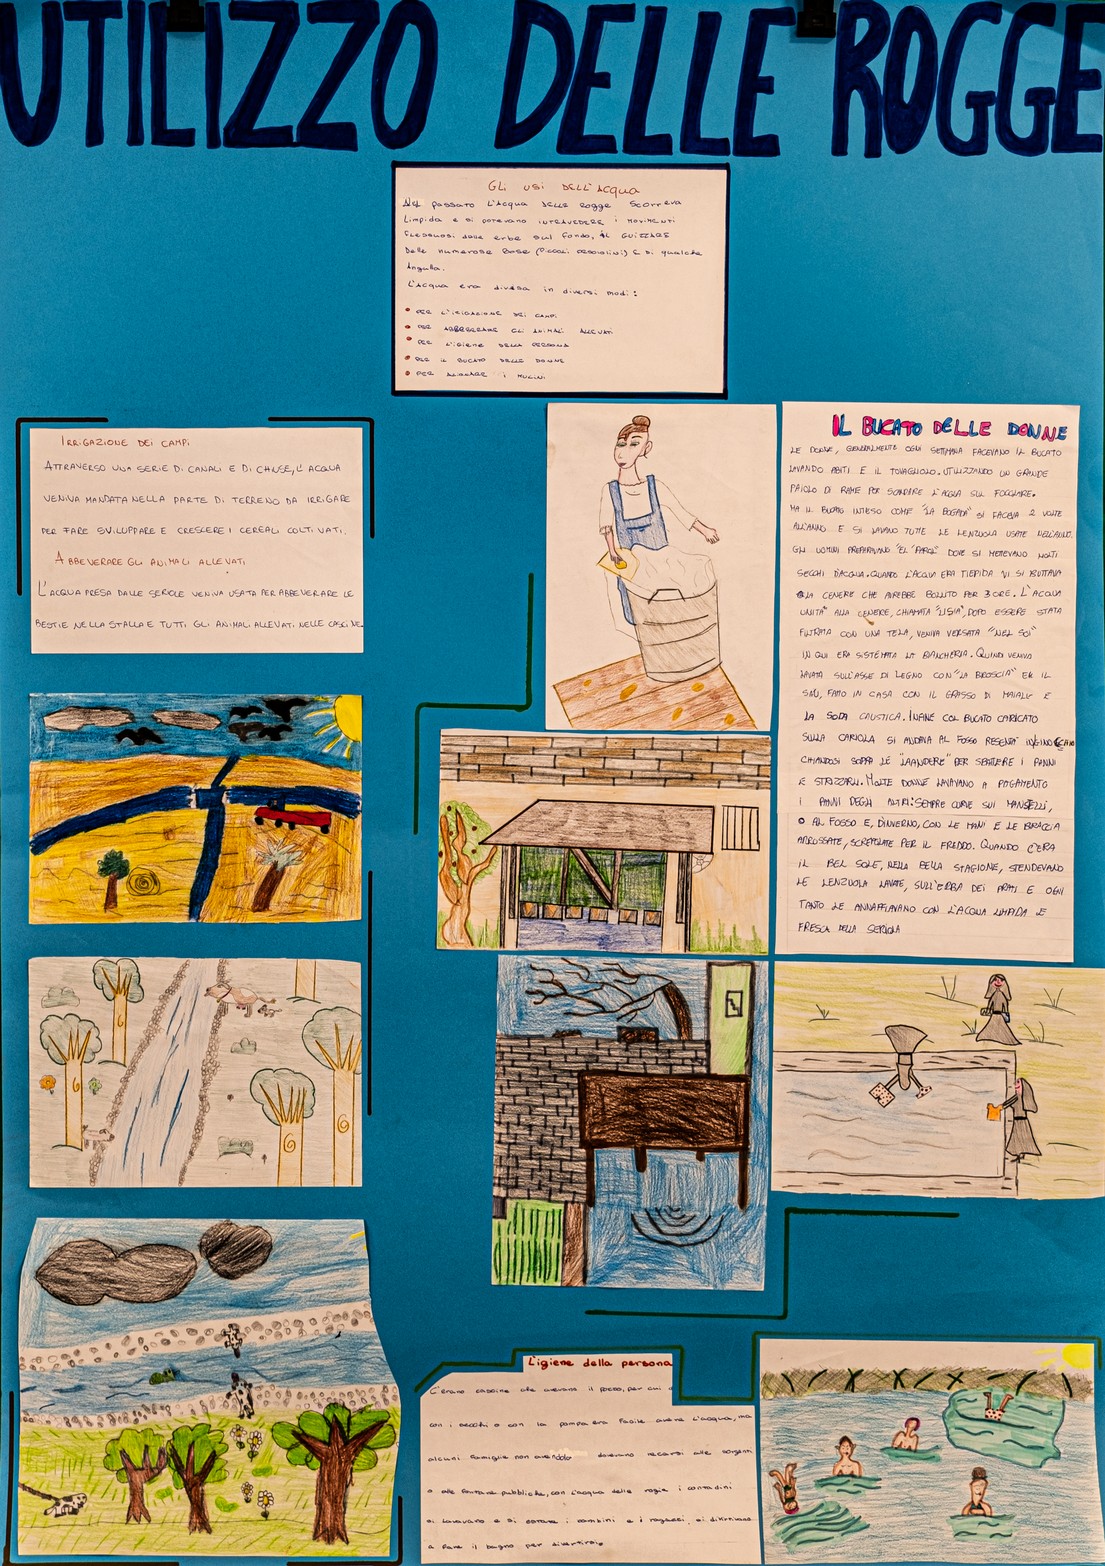 UTILIZZO DELLE ROGGE
GLI USI DELL'ACQUA
NEL PASSATO L'ACQUA DELLE ROGGE SCORREVA
LIMPIDA E SI POTEVANO INTRAVEDERE I MOVIMENTI
FLESSUOSI DELLE ERBE SUL FONDO, IL GUIZZARE
DELLE NUMEROSE BOSE (PICCOLI PESCIOLINI) E DI QUALCHE
ANGUILLA.
L'ACQUA ERA DIVISA IN DIVERSI MODI:
• PER L'IRIGAZIONE DEI CAMPI
• PER ABBEVERARE GLI ANIMALI ALLEVATI
• PER L'IGIENE DELLA PERSONA
• PER IL BUCATO DELLE DONNE
• PER AZIONARE I MULINI
IRRIGAZIONE DEI CAMPI
ATTRAVERSO UNA SERIE DI CANALI E DI CHIUSE, L'ACQUA
VENIVA MANDATA NELLA PARTE DI TERRENO DA IRRIGARE
PER FARE SVILUPPARE E CRESCERE I CEREALI COLTIVATI.
ABBEVERARE GLI ANIMALI ALLEVATI
L'ACQUA PRESA DALLE SERIOLE VENIVA USATA PER ABBEVERARE LE
BESTIE NELLA STALLA E TUTTI GLI ANIMALI ALLEVATI NELLE CASCINE.
IL BUCATO DELLE DONNE
LE DONNE, GENERALMENTE OGNI SETTIMANA FACEVANO IL BUCATO
LAVANDO ABITI E IL TOVAGLIOLO. UTILIZZANDO UN GRANDE
PAIOLO DI RAME PER SCALDARE L'ACQUA SUL FOCOLARE.
MA IL BUCATO INTESO COME "LA BUGADA" SI FACEVA 2 VOLTE
ALL'ANNO E SI LAVANO TUTTE LE LENZUOLA USATE NELL'AUNO.
GLI UOMINI PREPARAVANO "EL PAROL" DOVE SI METEVANO MOLTI
SECCHI D'ACQUA. QUANDO L'ACQUA ERA TIEPIDA VI SI BUTTAVA
LA CENERE CHE AVREBBE BOLLITO PER 3 ORE. L'ACQUA
UNITA ALLA CENERE, CHIAMATA "LISIA", DOPO ESSERE STATA
FILTRATA CON UNA TELA, VENIVA VERSATA "NEL SOI"
IN CUI ERA SISTEMATA LA BIANCHERIA. QUINDI VENIVA
LAVATA SULL'ASSE DI LEGNO CON "LA BROSCIA" E IL
FATTO IN CASA CON IL GRASSO DI MAIALE E
LA SODA CAUSTICA. INFINE COL BUCATO CARICATO
SULLA CARIOLA SI ANDAVA AL FOSSO INGINOCCHIO
CHIANDOSI SOPRA LE "LAANDERE" PER SBATTERE I PANNI
E STRIZZARLI. MOLTE DONNE LAVAVANO A PAGAMENTO
I PANNI DEGLI ALTRI: SEMPRE CURVE SUI MANSTELLI,
O AL FOSSO E, D'INVERNO, CON LE MANI E LE BRACCIA
ARROSSATE, SCREPOLATE PER IL FREDDO. QUANDO C'ERA
IL BEL SOLE, NELLA BELLA STAGIONE, STENDEVANO
LE LENZUOLA LAVATE, SULL'ERBA DEI PRATI E OGNI
TANTO LE ANNAFFIAVANO CON L'ACQUA LIMPIDA LE
FRESCA DELLA SERIOLA
L'igiene della persona
C'erano cascine che avevano il pozzo, per cui o
con i secchi o con la pompa era facile avere l'acqua, ma
alcuni famiglie non avendolo dovevano recarsi alle sorgenti
o alle fontane pubbliche, con l'acqua delle rogie i contadini
si lavavano e si estate i bambini e i ragazzi, si divertivano
a fare il bagno per divertirsi